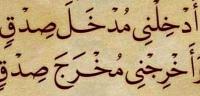 أَدْخِلْنِي مُدْخَلَ صِدْقٍ
وَأَخْرِجْنِي مُخْرَجَ صِدْقٍ